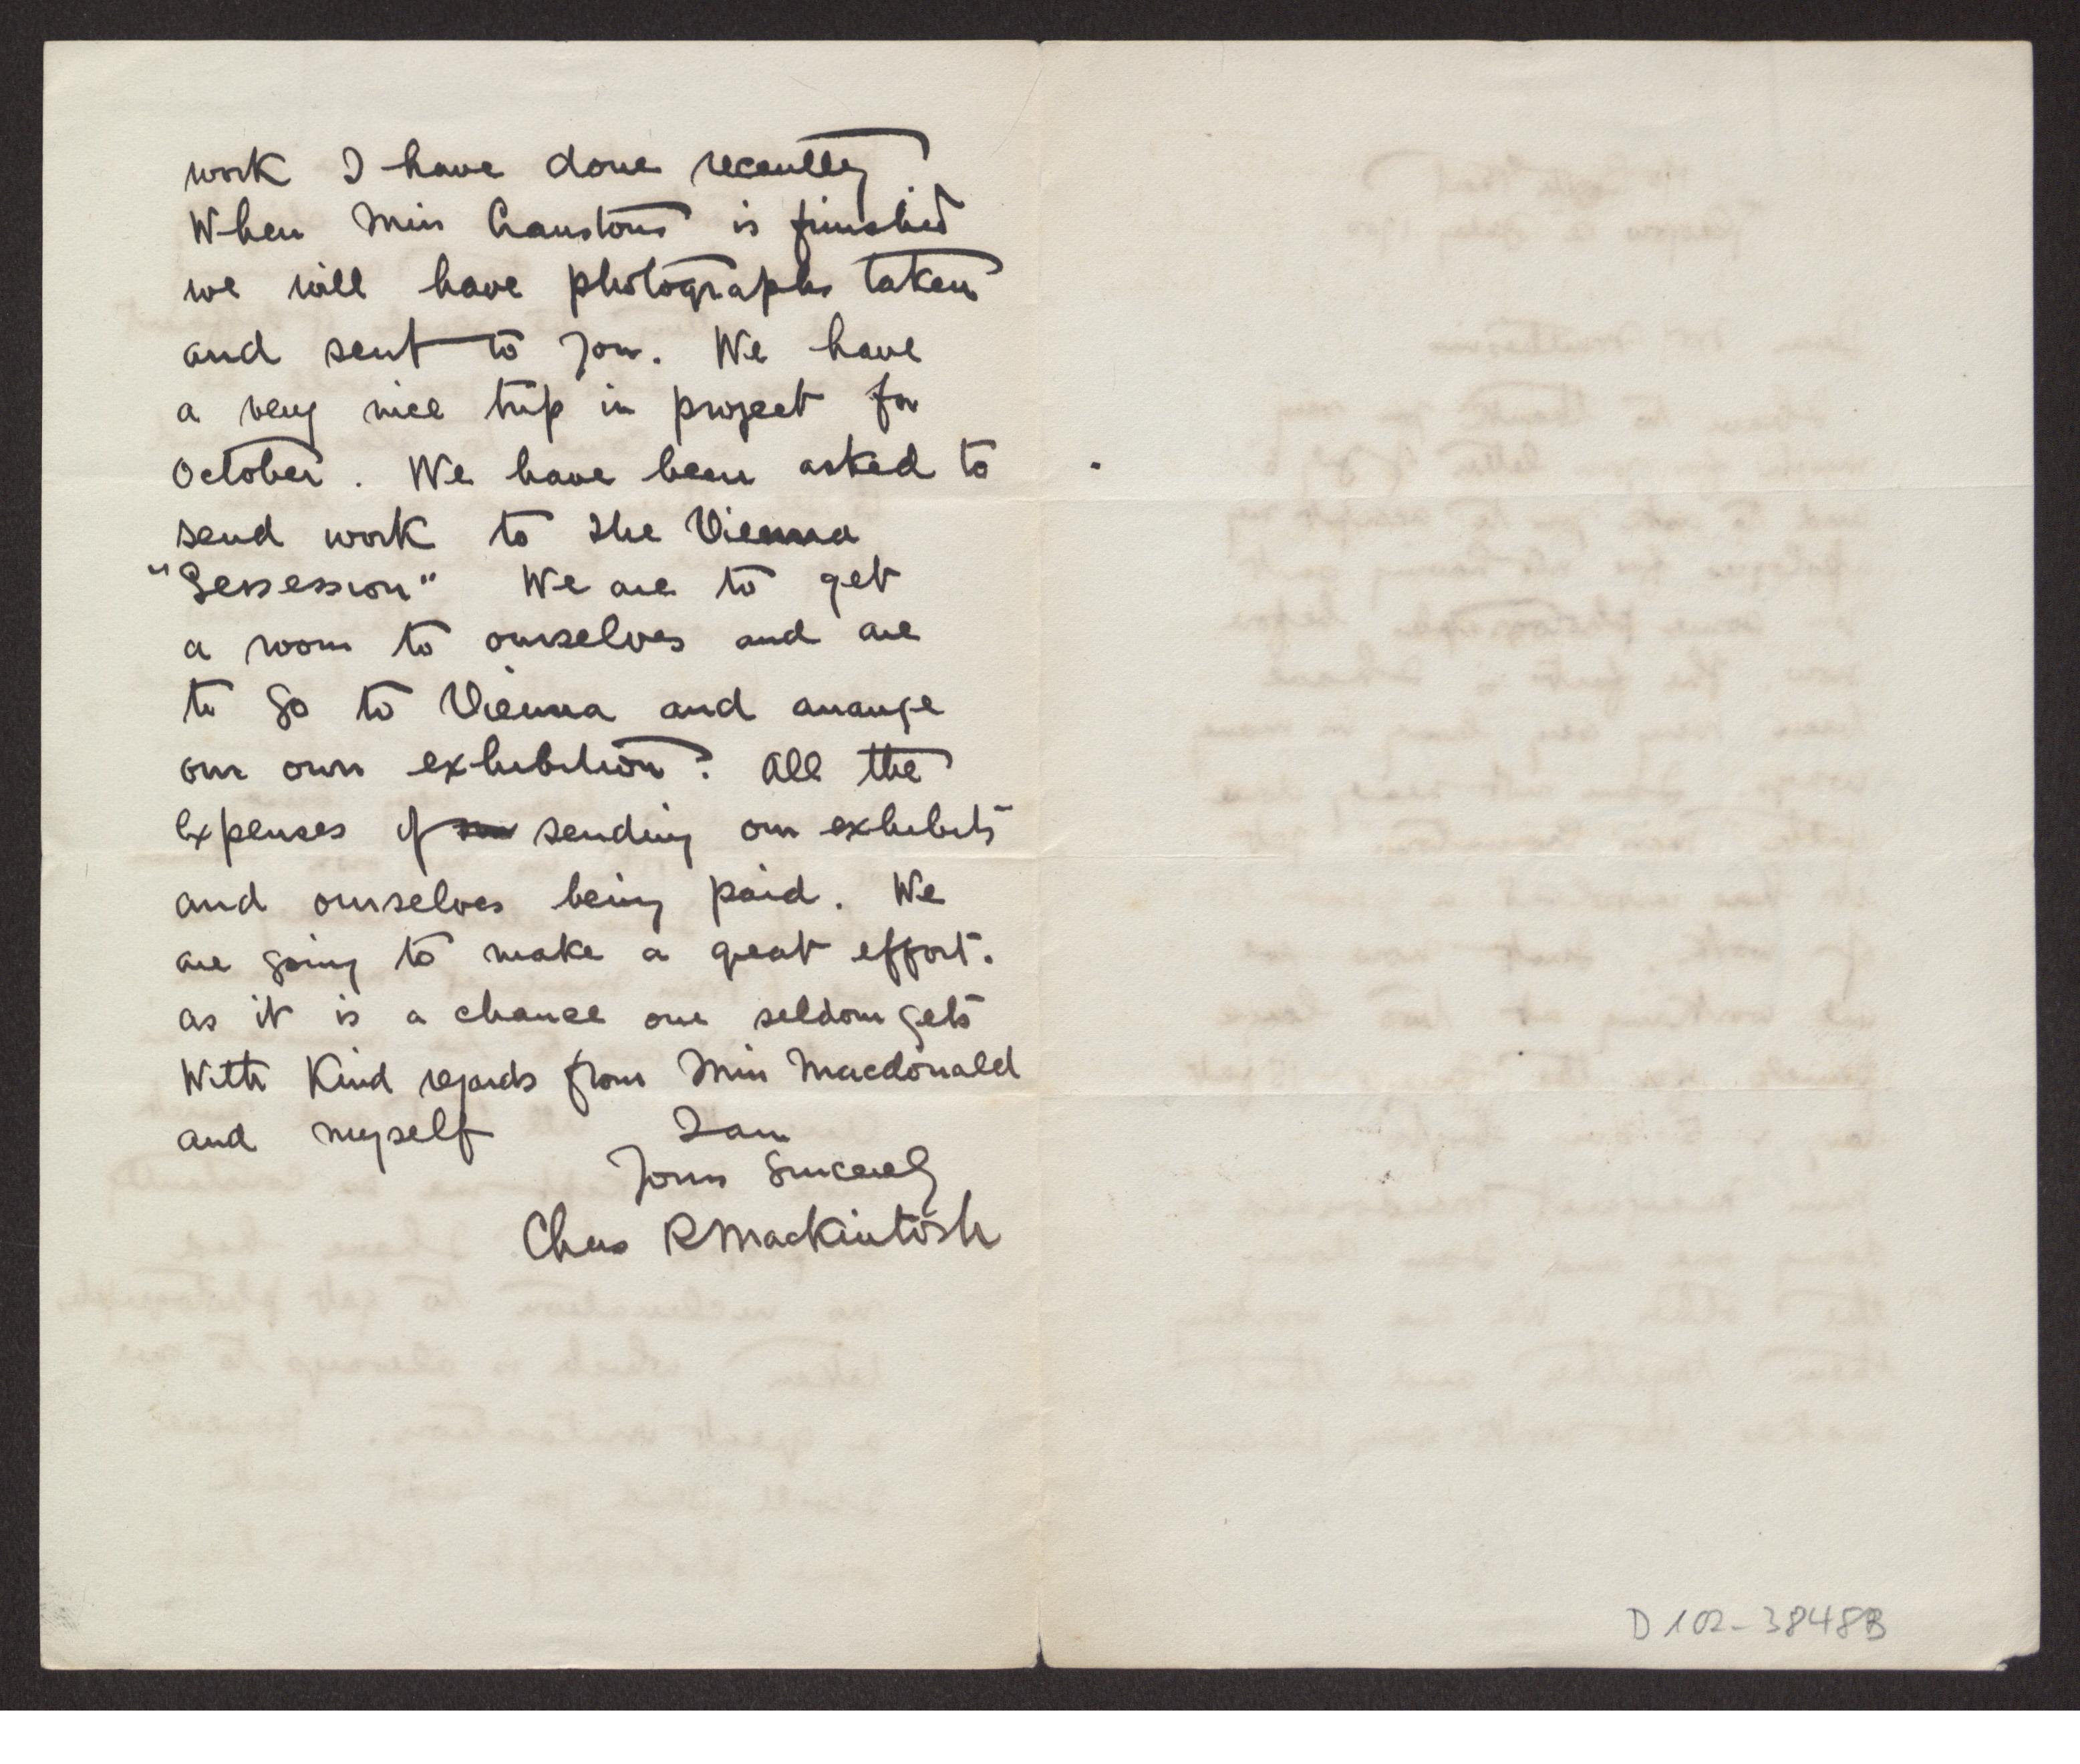 work I have done recently
When Miss Cranstons is finished
we will have photographs taken
and sent to you. We have
a very nice trip in project for
October. We have been asked to
send work to the Vienna
"Sessession" We are to get
a room to ourselves and are
to go to Vienna and arrange
our own exhibition? All the
expenses of sending our exhibits
and ourselves being paid. We
are going to make a great effort.
as it is a chance one seldom gets
With Kind regards from Miss Macdonald
and myself I am
Yours Sincerely
Chas R Mackintosh
D 102-3848B